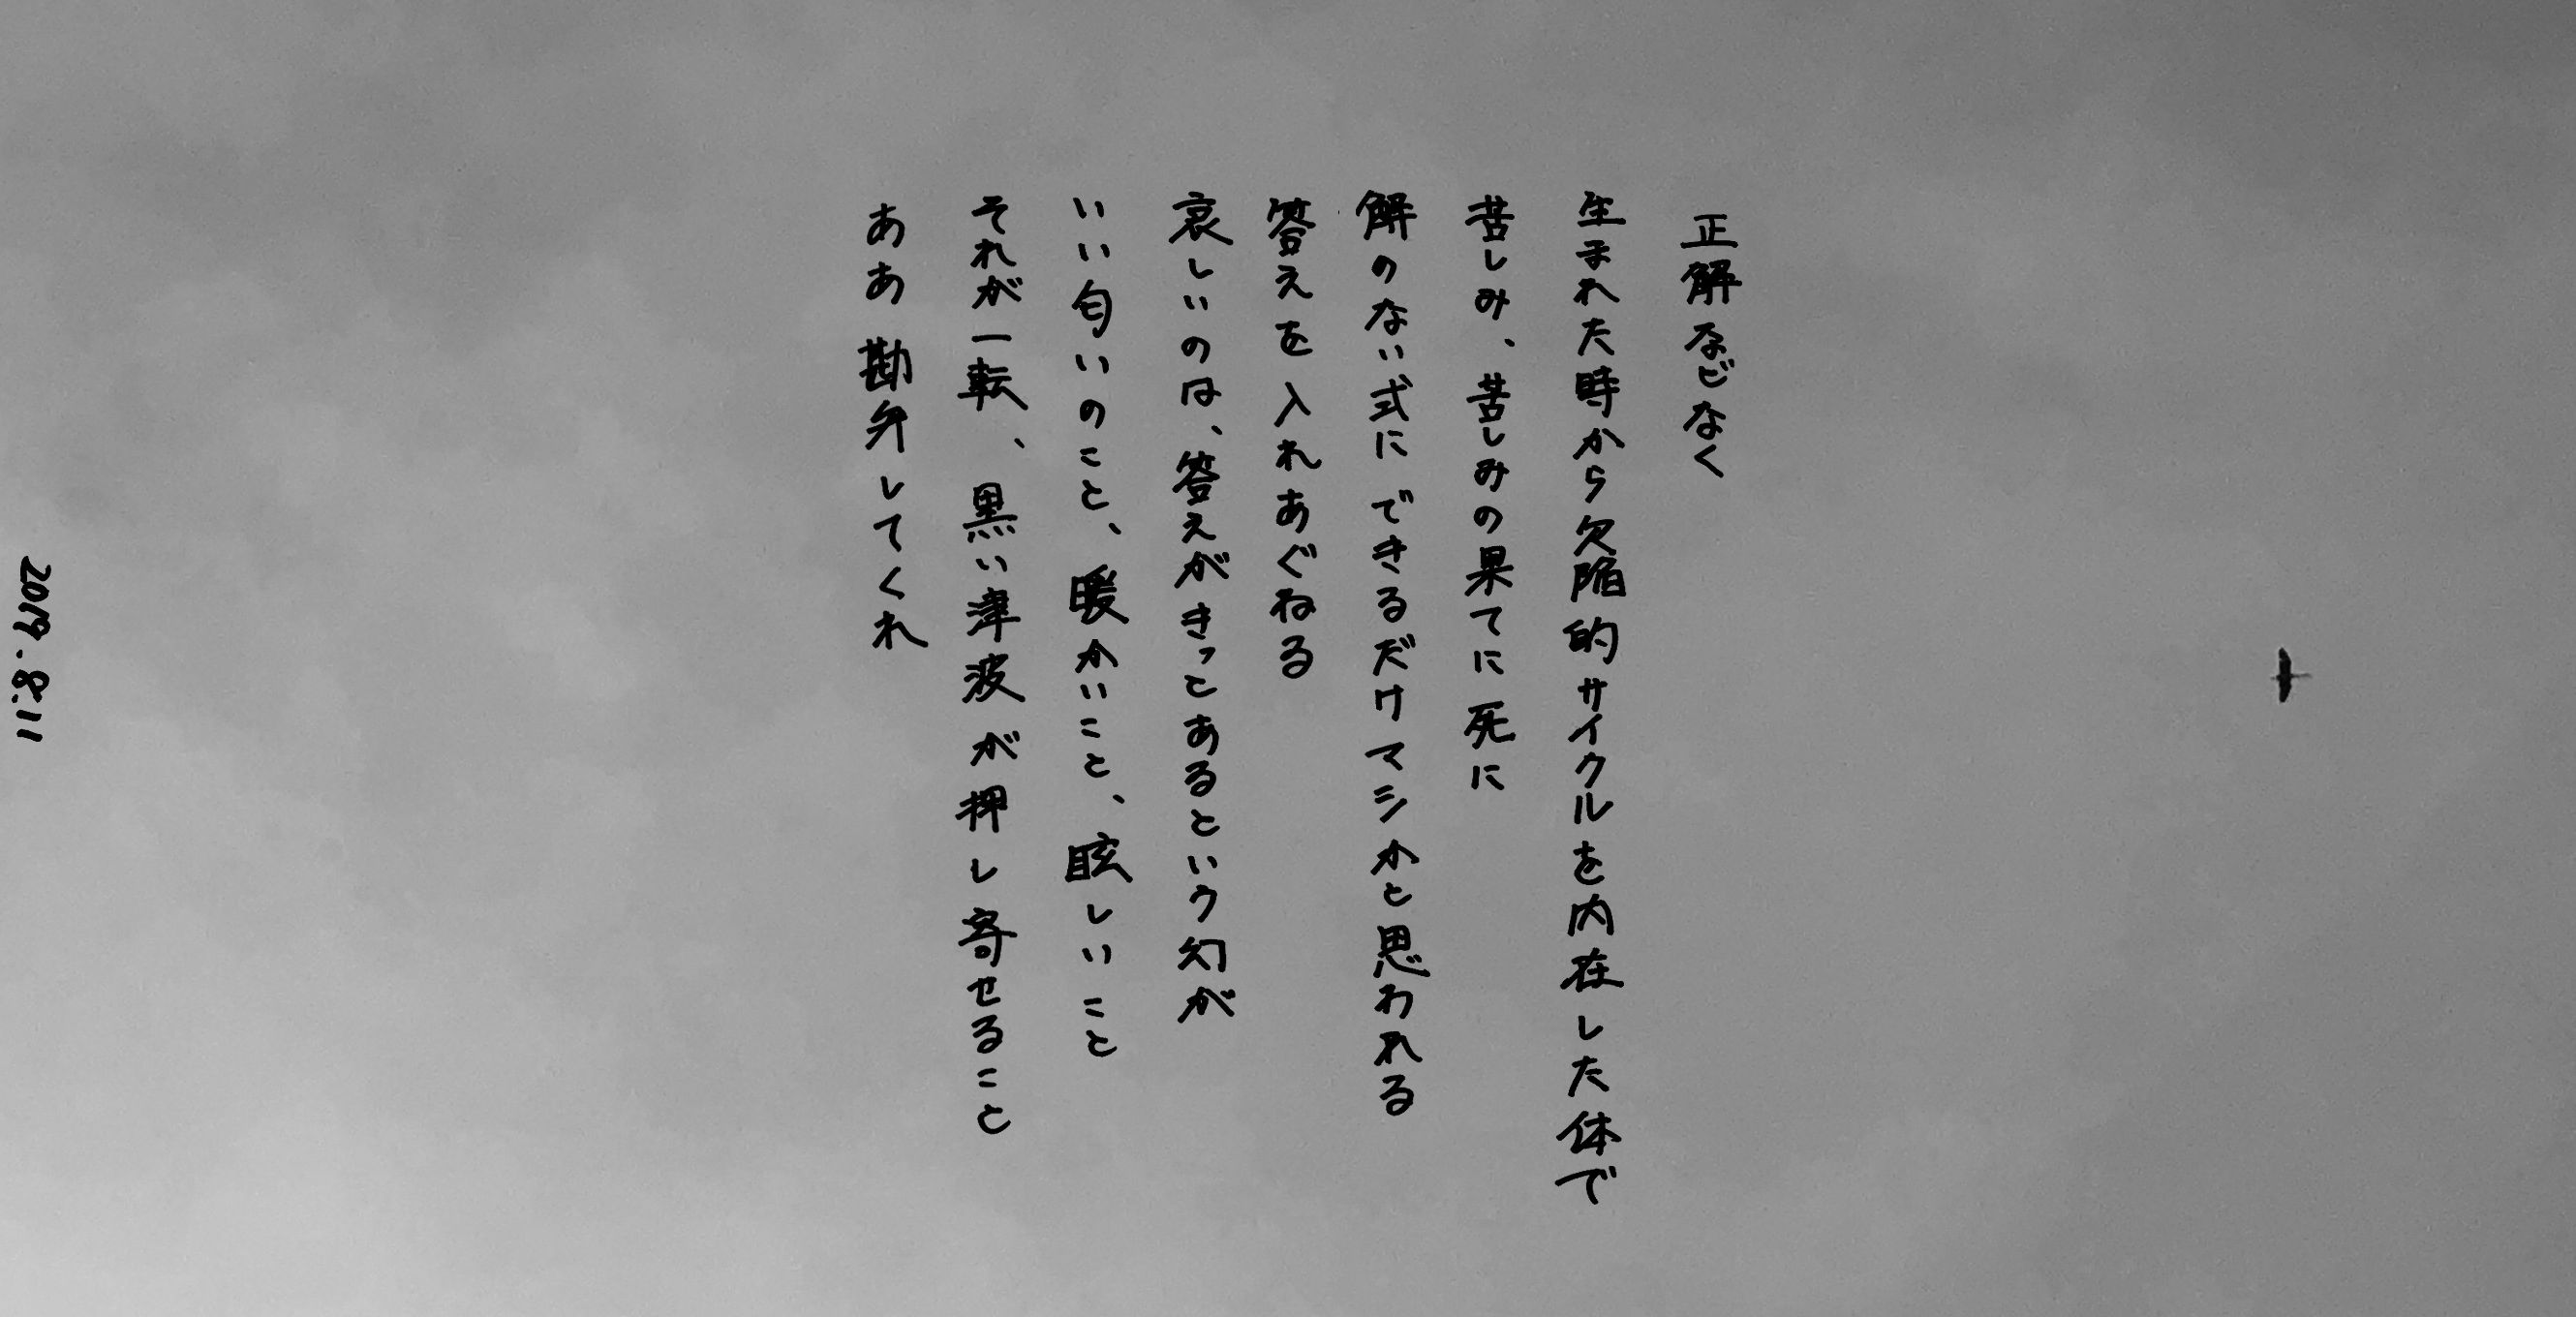 正解などなく
生まれた時から欠陥的サイクルを内在した体で
苦しみ、苦しみの果てに死に
解のない式にできるだけマシかと思われる
答えを入れあぐねる
哀しいのは、答えがきっとあるという幻が
いい匂いのこと、暖かいこと、眩しいこと
それが一転、黒い津波が押し寄せること
ああ 勘弁してくれ
2019.8.11